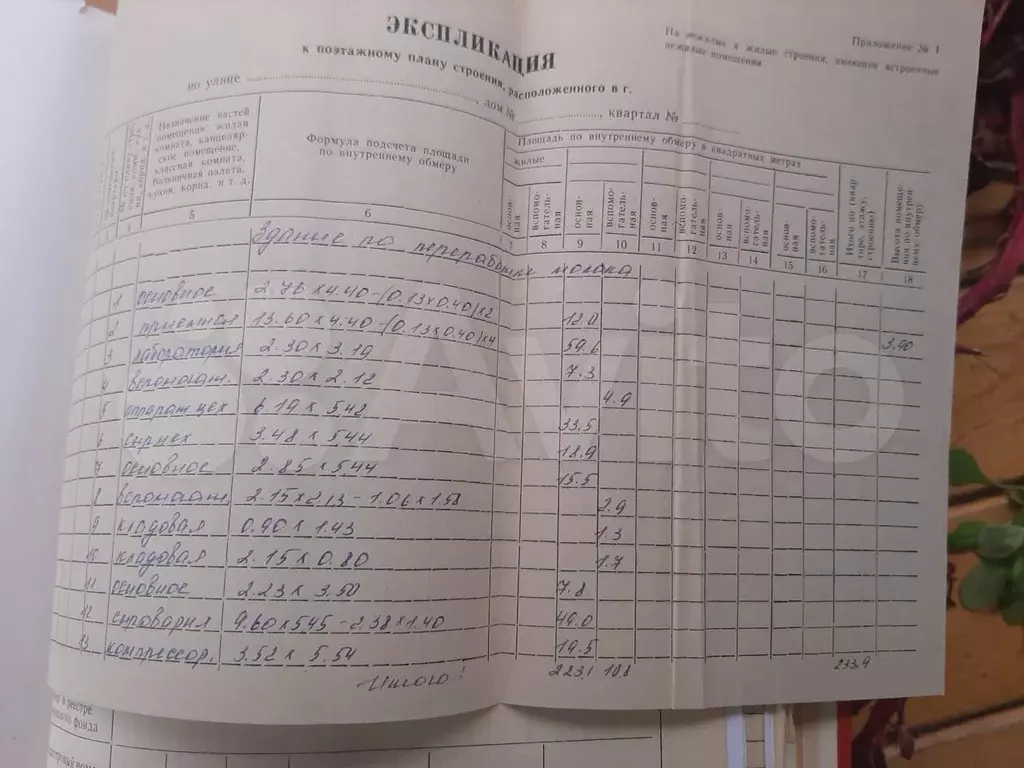 ЭКСПЛИКАЦИЯ
Приложение № 1
На нежилые и жилые строения, имеющие встроенные
нежилые помещения
к поэтажному плану строения, расположенного в г.
по улице , дом № , квартал №
Назначение частей
помещения: жилая
комната, канцеляр-
ское помещение,
классная комната,
больничная палата,
кухня, корид. и т. д.
Формула подсчета площади
по внутреннему обмеру
Площадь по внутреннему обмеру в квадратных метрах
жилые
основ-
ная
вспомо-
гатель-
ная
основ-
ная
вспомо-
гатель-
ная
основ-
ная
вспомо-
гатель-
ная
основ-
ная
вспомо-
гатель-
ная
основ-
ная
вспомо-
гатель-
ная
Итого по (квар-
тире, этажу,
строению)
Высота помеще-
ния по внутрен-
нему обмеру
3 4 5 6 7 8 9 10 11 12 13 14 15 16 17 18
Здание по переработке молока
1 основное 2.76 х 4.40 - (0.13 х 0.40) х 2 12.0 3.90
2 приемная 13.60 х 4.40 - (0.13 х 0.40) х 4 59.6
3 лаборатория 2.30 х 3.19 7.3
4 вспомогат. 2.30 х 2.12 4.9
5 аппарат.цех 6.19 х 5.42 33.5
6 сырцех 3.48 х 5.44 18.9
7 основное 2.85 х 5.44 15.5
8 вспомогат. 2.15 х 2.13 - 1.06 х 1.58 2.9
9 кладовая 0.90 х 1.43 1.3
10 кладовая 2.15 х 0.80 1.7
11 основное 2.23 х 3.50 7.8
12 сыроварня 9.60 х 5.45 - 2.38 х 1.40 49.0
13 компрессор. 3.52 х 5.54 19.5
Итого: 223.1 10.8 233.9
в реестре
фонда
Avito